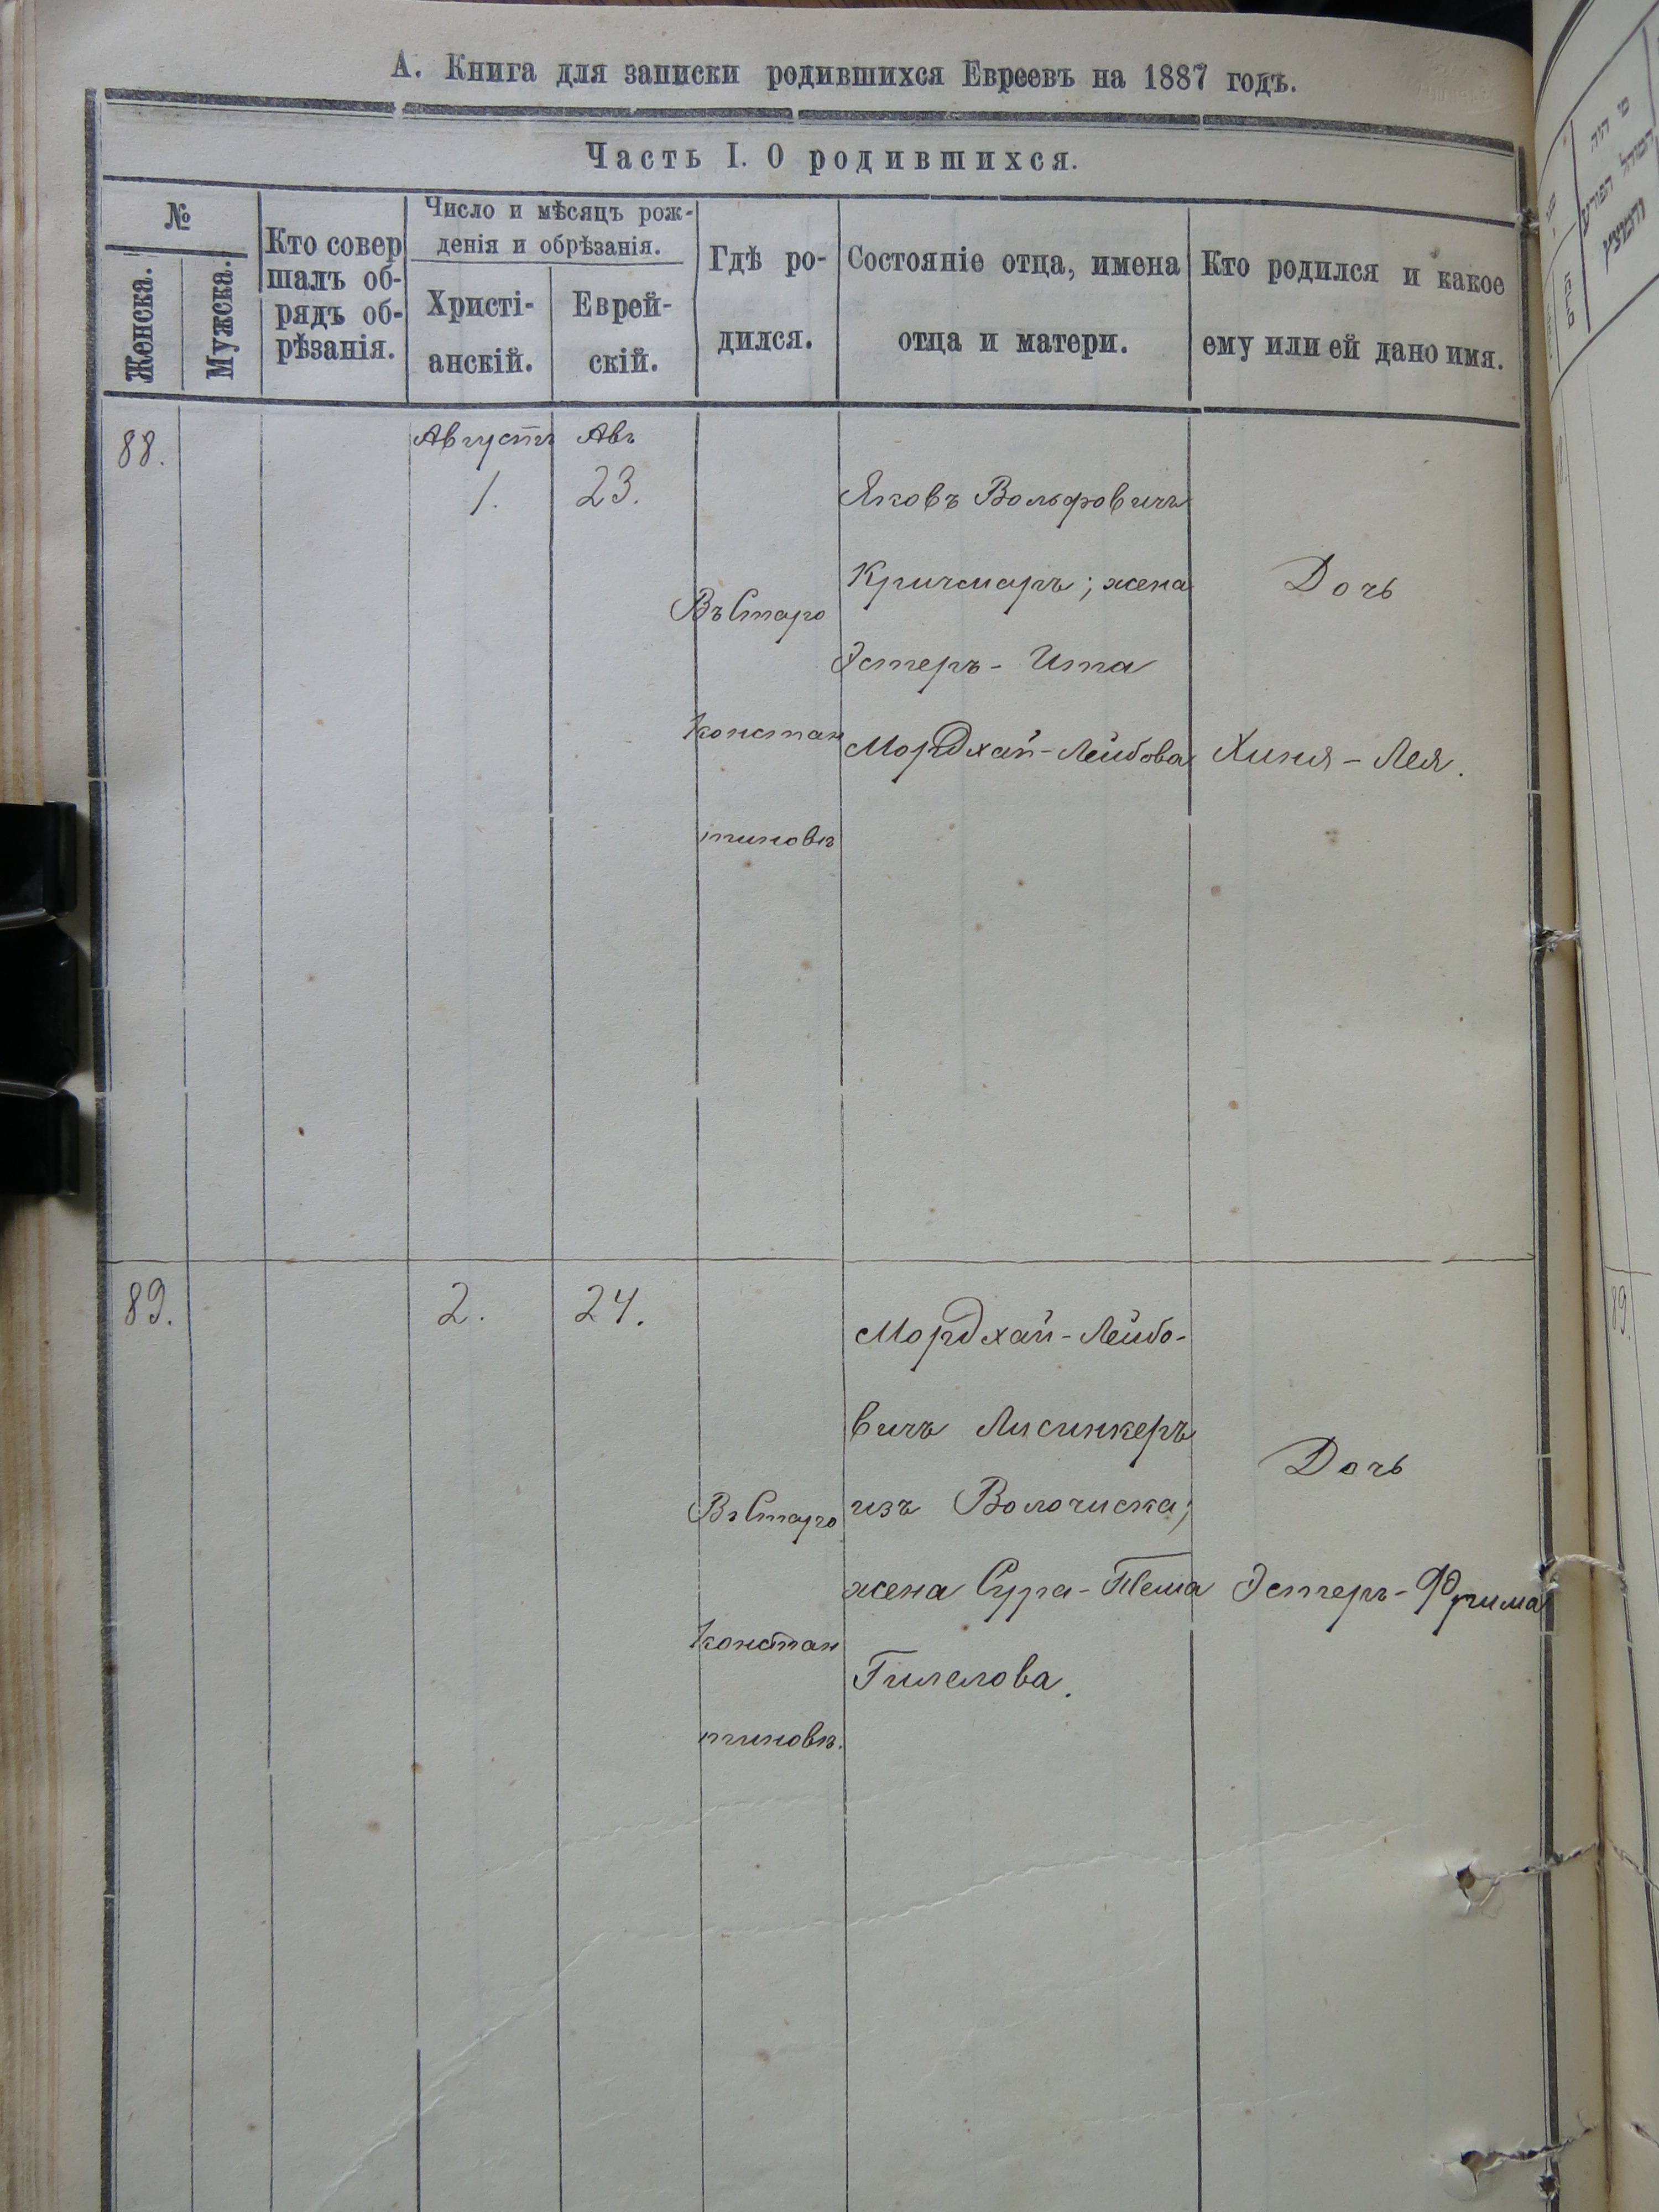 А. Книга для записки родившихся Евреевъ на 1887 годъ.
Часть I. О родившихся.
№
Женска.
Мужска.
Кто совер
шалъ об-
рядъ об-
рѣзанія.
Число и мѣсяцъ рож-
денія и обрѣзанія.
Христі-
анскій.
Еврей-
скій.
Гдѣ ро-
дился.
Состояніе отца, имена
отца и матери.
Кто родился и какое
ему или ей дано имя.
88.
Августъ
1.
Авъ
23.
Въ Старо
констан
тиновѣ
Яковъ Вольфовичъ
Кричмаръ; жена
Эстеръ - Ита
Мордхай - Лейбова
Дочь
Хиня - Лея.
89.
2.
24.
Въ Старо
констан
тиновѣ.
Мордхай - Лейбо-
вичъ Лисинкеръ
изъ Волочиска;
жена Сура - Тема
Гилелова.
Дочь
Эстеръ - Фрима
89.